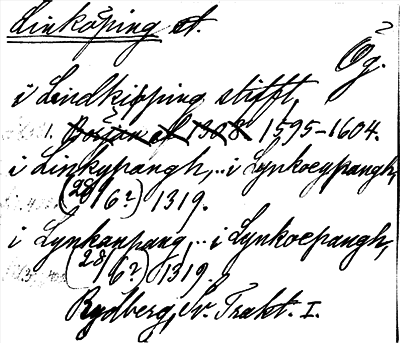 Linköping st.
Ög.
i Lindkiöping stifft,
1. Boŝtan af 1308. 1595-1604.
i Linkypangh, .. i Lynkoeypangh,
(28/6?) 1319.
i Lynkanpang, .. i Lynkoepangh,
(28/6?) 1319.
Rydberg, Sv. Trakt. I.